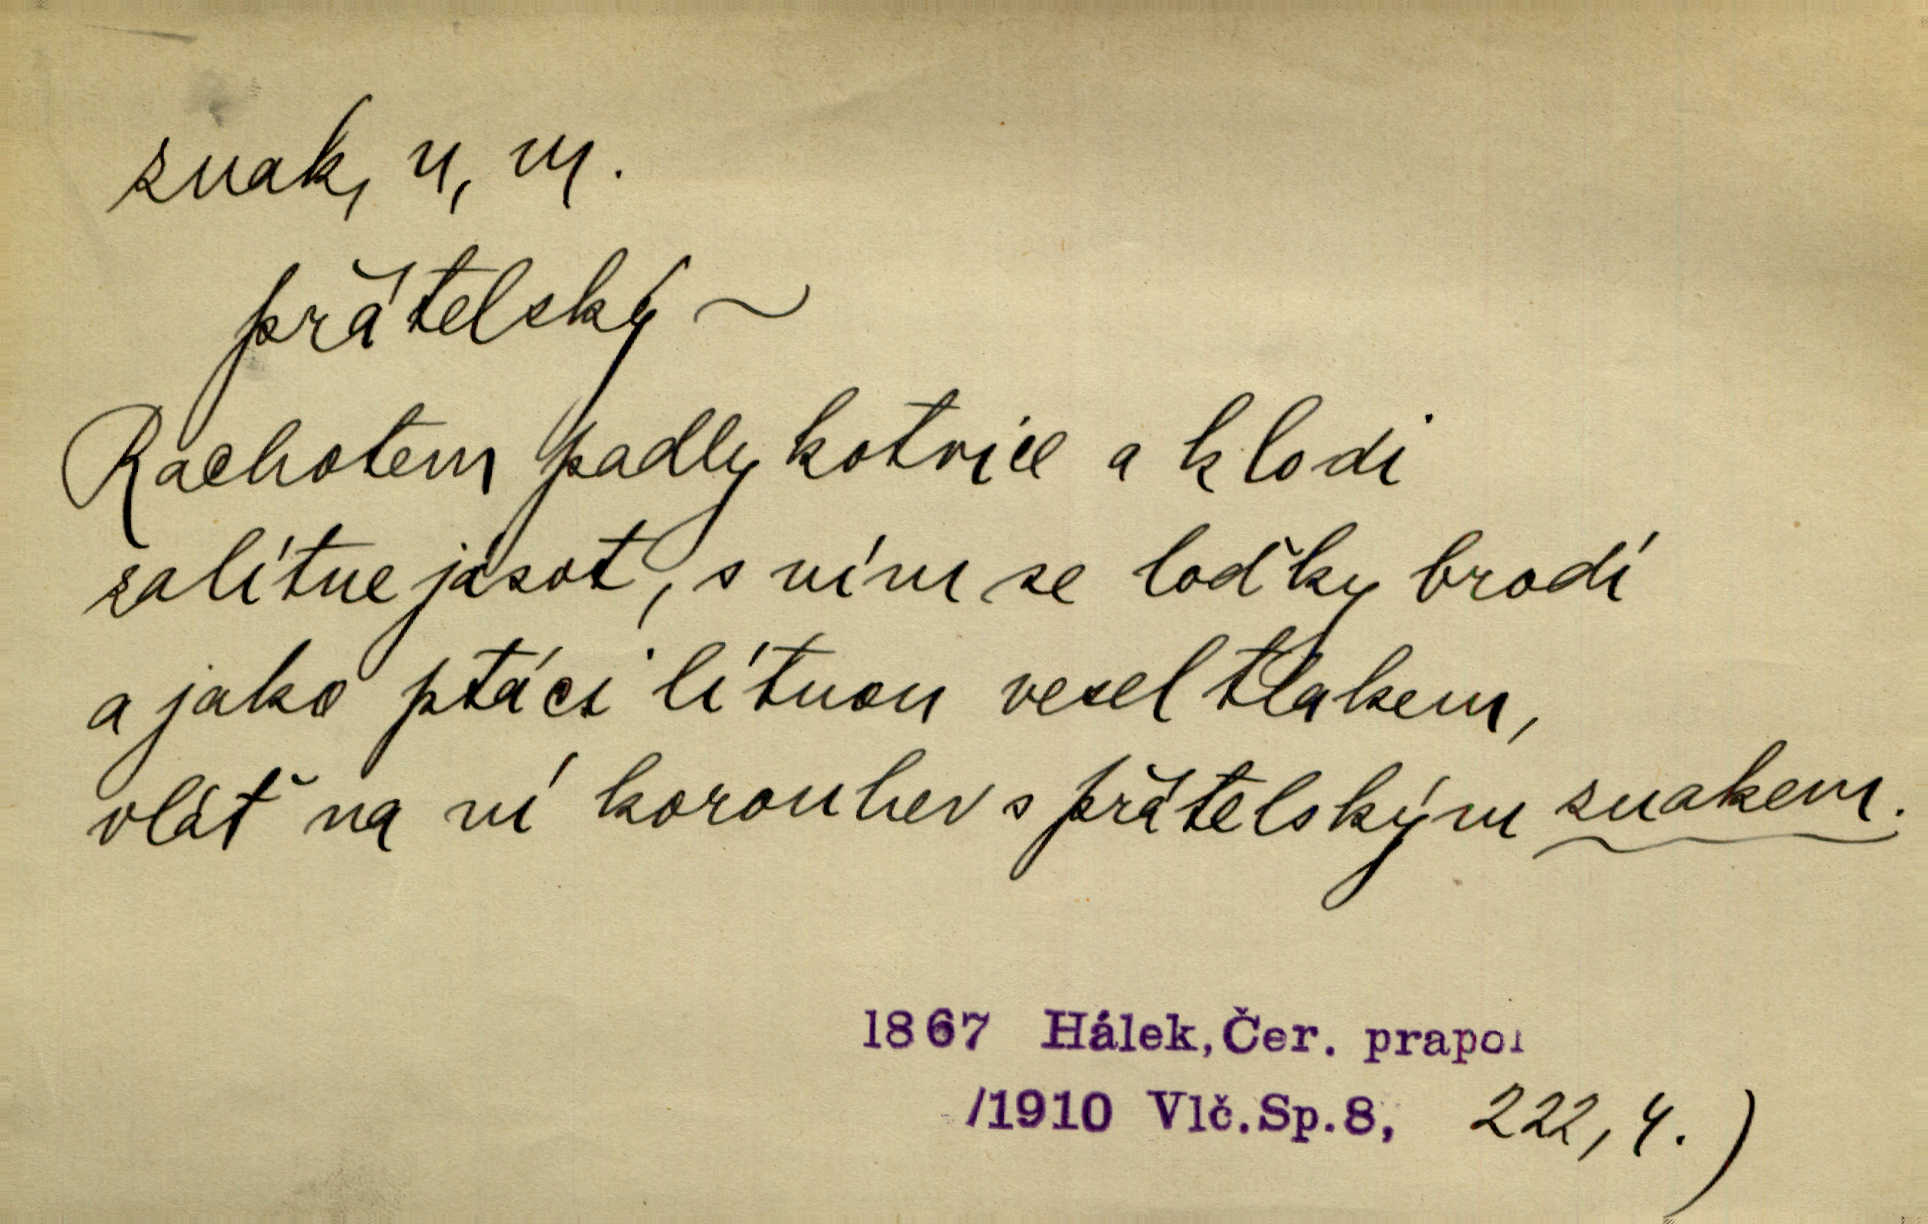 znak, u, m.
přátelský ~
Rachotem padly kotvice a k lodi
zalítne jásot, s ním se loďky brodí
a jako ptáci lítnou vesel tlakem,
vlát' na ní korouhev s přátelským znakem.
1867 Hálek, Čer. prapor
/1910 Vlč.Sp.8, 222, 4.)